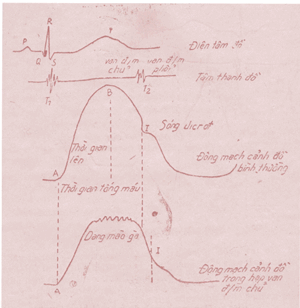 R
P
T
Điện tâm đồ
Q
S
van đ/m chủ
van đ/m phổi
Tâm thanh đồ
T1
T2
B
Sóng dicrot
I
Thời gian lên
Động mạch cảnh đồ bình thường
A
Thời gian tống máu
Dạng mào gà
I
Động mạch cảnh đồ trong hẹp van đ/m chủ
A